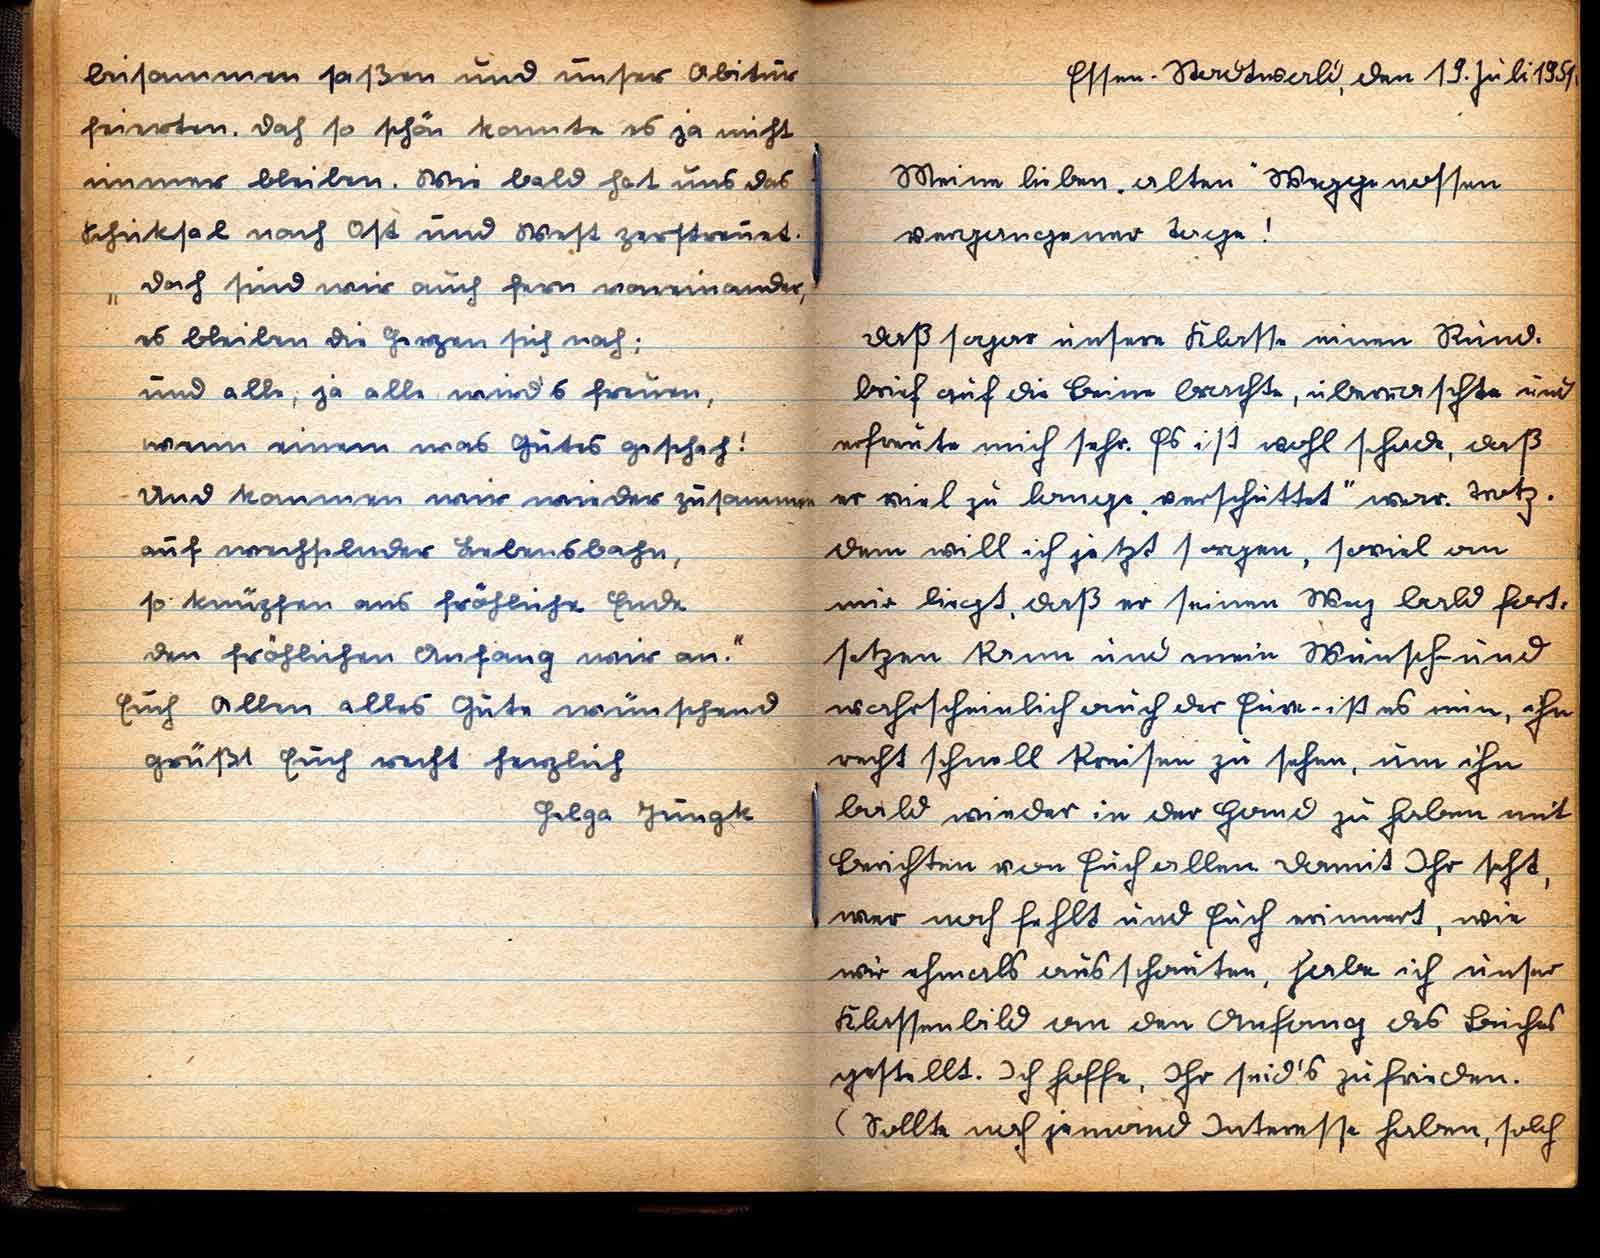 beisammen saßen und unser Abitur
feierten. Doch so schön konnte es ja nicht
immer bleiben. Wie bald hat uns das
Schiksal nach Ost und West zerstreuet.
„ Doch sind wir auch fern voneinander,
es bleiben die Herzen sich nah;
und alle, ja alle wird's freuen,
wenn einem was Gutes geschah!
Und kommen wir wieder zusammen
auf wechselnder Lebensbahn,
so knüpfen ans fröhliche Ende
den fröhlichen Anfang wir an."
Euch Allen alles Gute wünschend
grüßt Euch recht herzlich
Helga Jungk
Essen-Stadtwald, den 19. Juli 1951.
Meine lieben „alten" Weggenossen
vergangener Tage!
Daß sogar unsere Klasse einen Rund-
brief auf die Beine brachte, überraschte und
erfreute mich sehr. Es ist wohl schade, daß
er viel zu lange „verschüttet" war. Trotz-
dem will ich jetzt sorgen, soviel an
mir liegt, daß er seinen Weg bald fort-
setzen kann und mein Wunsch - und
wahrscheinlich auch der Eure - ist es nun, ihn
recht schnell kreisen zu sehen, um ihn
bald wieder in der Hand zu haben mit
Berichten von Euch allen. Damit Ihr seht,
wer noch fehlt und Euch erinnert, wie
wir ehmals ausschauten, habe ich unser
Klassenbild an den Anfang des Buches
gestellt. Ich hoffe, Ihr seid's zufrieden.
(Sollte noch jemand Interesse haben, solch